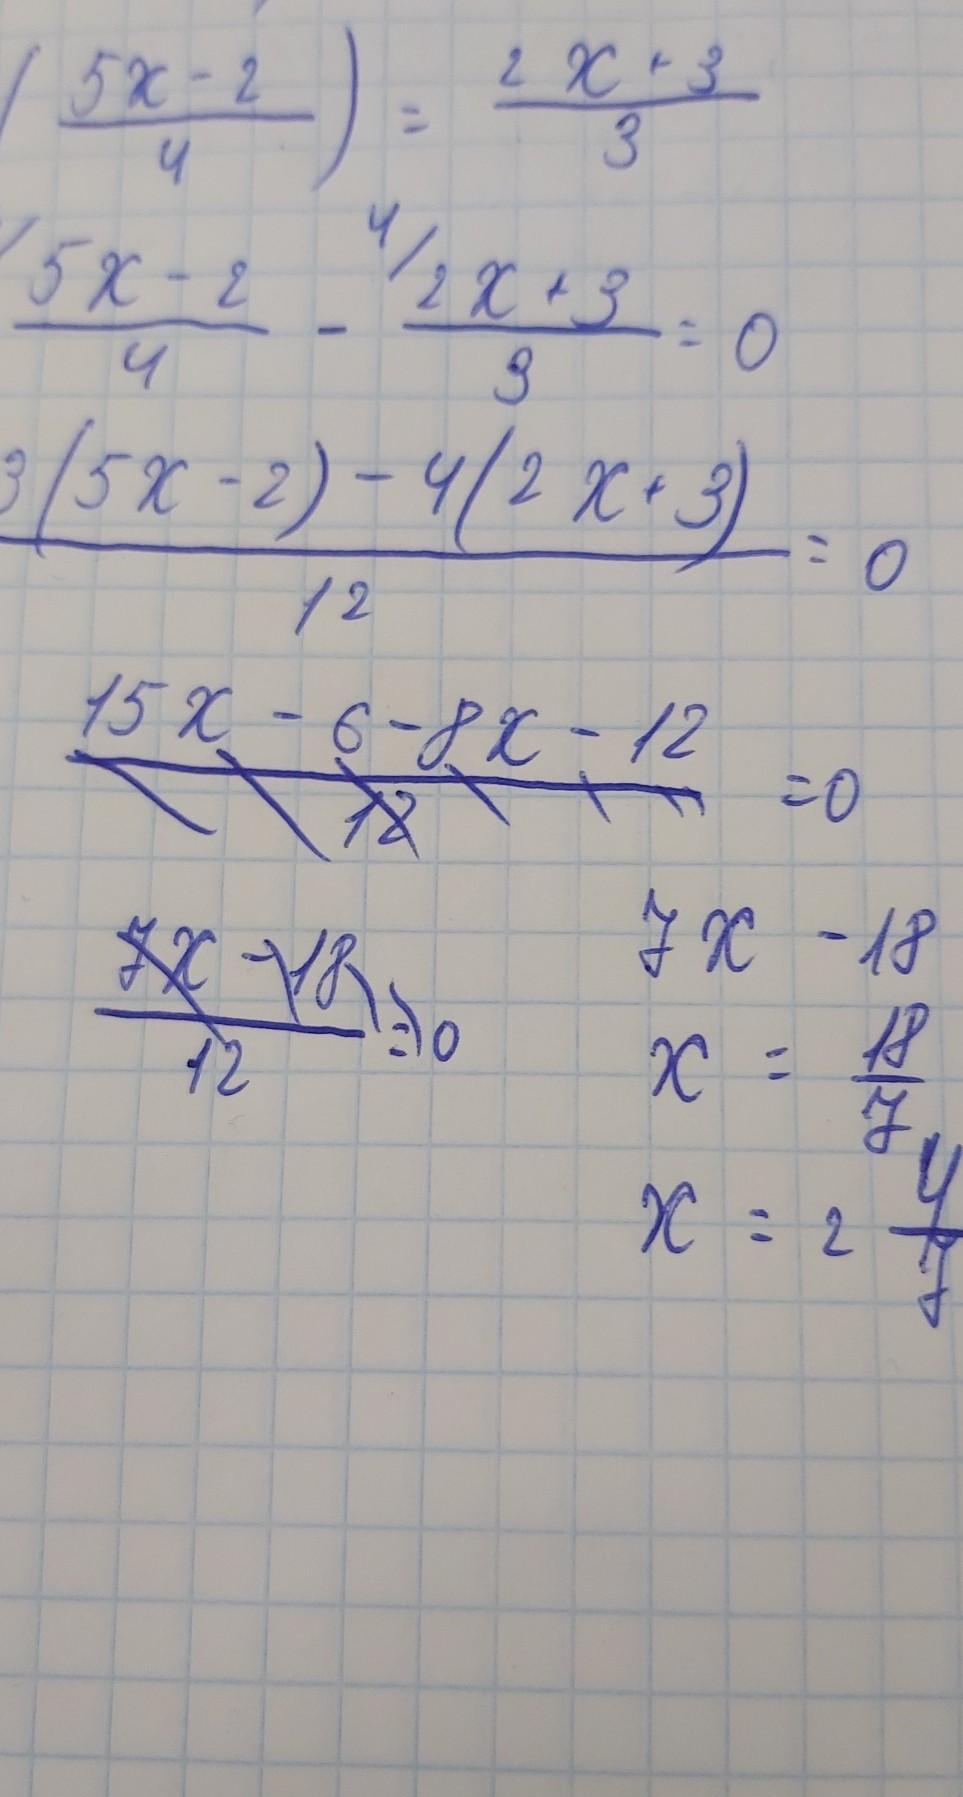 ( (5x - 2)/4 ) = (2x + 3)/3
/ (5x - 2)/4 - 4/ (2x + 3)/3 = 0
(3(5x - 2) - 4(2x + 3))/12 = 0
(15x - 6 - 8x - 12)/12 = 0
(7x - 18)/12 = 0
7x - 18
x = 18/7
x = 2 4/7